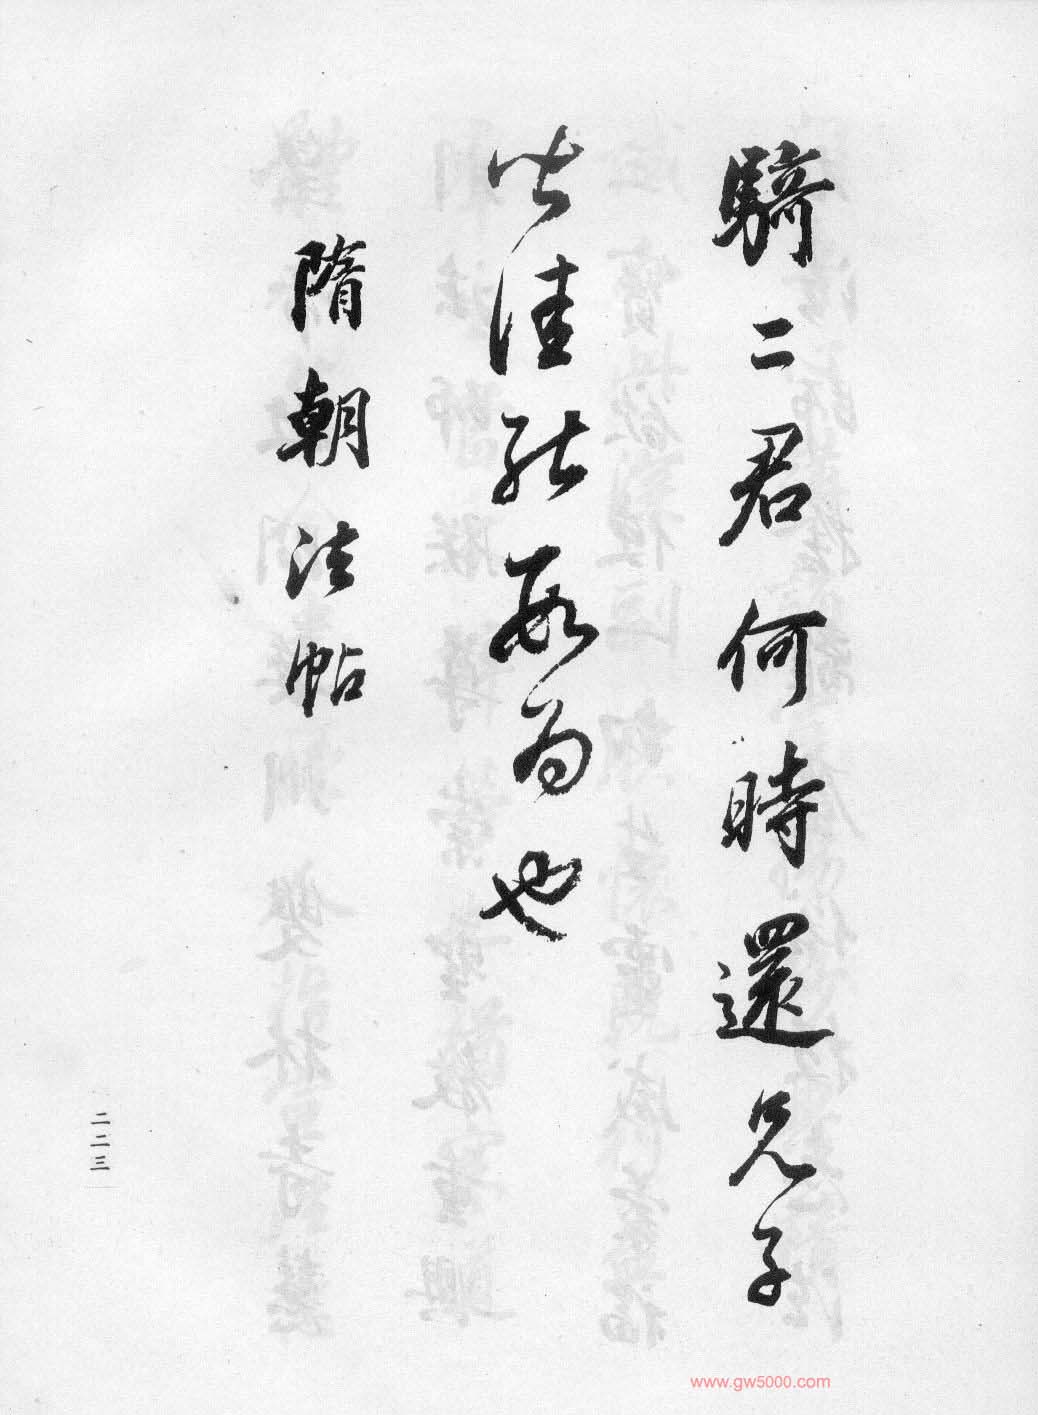 騎二君何時還兄子
佳能也
隋朝法帖
二二三
www.gw5000.com